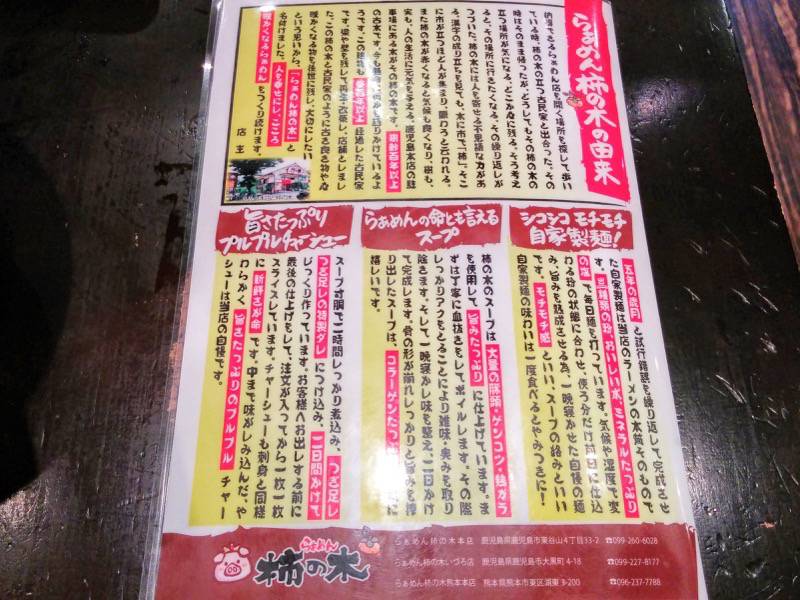 らぁめん柿の木の由来
納得できるらぁめん店を開く場所を探して歩い
ている時、柿の木の立つ古民家と出合った。その
時はそのまま帰ったが、どうしてもその柿の木の
立つ場所が気になる、どこか心に残る。そう考え
ると、その場所に行きたくなる。その繰り返しが
つづいた。柿の木には人を寄せる不思議な力があ
る。漢字の成り立ちを見ても、木に市で「柿」。そこ
に市が立つほど人が集まり、賑わうと云われる。
また柿の木が赤くなると気候も良くなり、樹も、
実も、人の生活に元気を与える。鹿児島本店の駐
車場にある木がその柿の木です。樹齢百年以上
の古木です。
暖かくなる物を後世に残し、大切にしたい
という思いから、「らぁめん柿の木」と
名付けました。人を幸せにし、こころ
暖かくなるらぁめんをつくり続けます。
店主
シコシコ モチモチ
自家製麺!
五年の歳月と試行錯誤を繰り返して完成させ
た自家製麺は当店のラーメンの本筋そのもので
す。三種類の粉、おいしい水、ミネラルたっぷり
の塩で毎日麺を打っています。気候や湿度で変
わる粉の状態に合わせ、使う分だけ毎日に仕込
み、旨みを熟成させる為、一晩寝かせた自慢の麺
です。モチモチ感といい、スープの絡みといい
自家製麺の味わいは一度食べるとやみつきに!
らぁめんの命とも言える
スープ
柿の木のスープは大量の豚頭・ゲンコツ・鶏ガラ
を使用して旨みたっぷりに仕上げています。ま
ずは丁寧に血抜きをしてボイルします。その際
しっかりアクをとることにより雑味・臭みを取り
除きます。そして一晩寝かし味を整え、二日かけ
て完成します。骨の形が崩れしっかりと旨みを搾
り出したスープは、コラーゲンたっ
嬉しいです。
旨さたっぷり
プルプルチャーシュー
スープ寸胴で二時間しっかり煮込み、つぎ足し
つぎ足しの特製ダレにつけ込み、二日間かけて
じっくり作っています。お客様へお出しする前に
最後の仕上げをして、注文が入ってから一枚一枚
スライスしています。チャーシューも刺身と同様
に新鮮さが命です。中まで味がしみ込んだ、や
わらかく旨さたっぷりのプルプルチャー
シューは当店の自慢です。
らぁめん
柿の木
らぁめん柿の木本店 鹿児島県鹿児島市東谷山4丁目33-2 ☎099-260-6028
らぁめん柿の木いづろ店 鹿児島県鹿児島市大黒町4-18 ☎099-227-8177
らぁめん柿の木熊本本店 熊本県熊本市東区湖東3-200 ☎096-237-7788